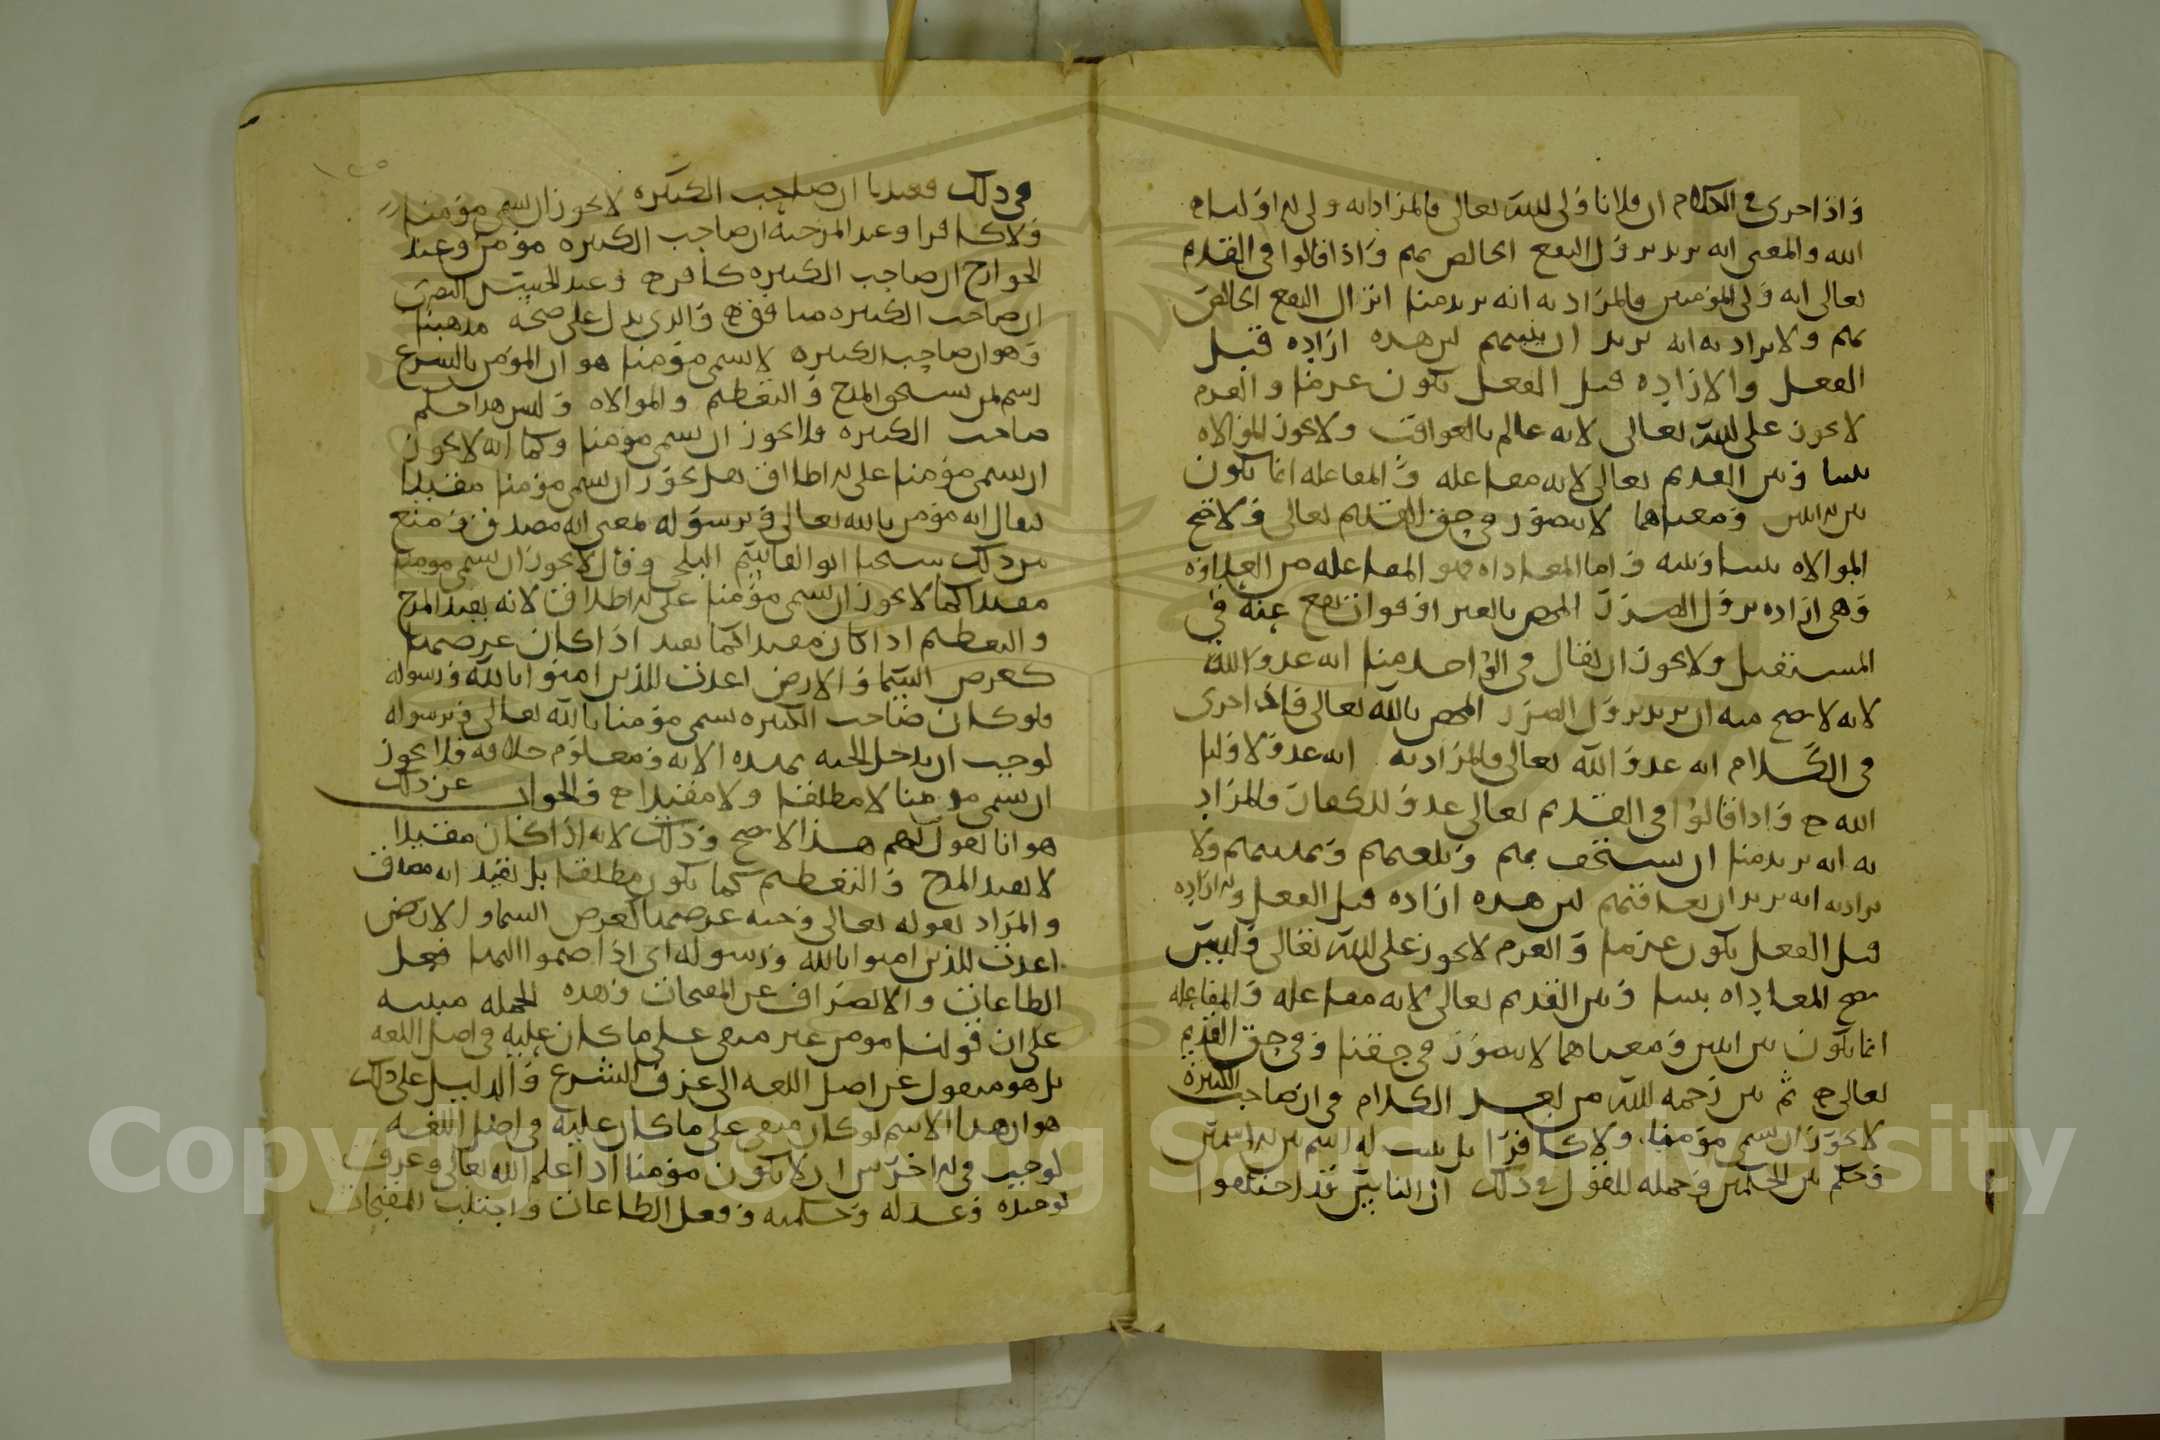 واذا جرى في الكلام ان فلانا ولي لله تعالى فالمراد انه ولي لاولياء
الله والمعنى انه يريد نزول النفع الخالص بهم واذا قالوا في القديم
تعالى انه ولي المؤمنين فالمراد به انه يريد منا انزال النفع الخالص
بهم ولا يراد به انه يريد ان يثيبهم لان هذه ارادة قبل
الفعل والارادة قبل الفعل تكون عزما والعزم
لا يجوز على الله تعالى لانه عالم بالعواقب ولا يجوز الموالاه
بيننا وبين القديم تعالى لانه مفاعله والمفاعله انما تكون
بين اثنين ومعناهما لا يتصور في حق القديم تعالى ولا تصح
الموالاه بيننا وبينه واما المعاداه فهو المفاعله من العداوة
وهي ارادة نزول الضرر المحض بالغير او فوات نفع عنه في
المستقبل ولا يجوز ان يقال في الواحد منا انه عدو الله
لانه لا يصح منه ان يريد نزول الضرر المحض بالله تعالى فاذا جرى
في الكلام انه عدو الله تعالى فالمراد به انه عدو لاوليا
الله واذا قالوا في القديم تعالى عدو للكفار فالمراد
به انه يريد منا ان نستخف بهم ونلعنهم ونهينهم ولا
يراد به انه يريد ان يعاقبهم لان هذه ارادة قبل الفعل والارادة
قبل الفعل تكون عزما والعزم لا يجوز على الله تعالى وليس
تصح المعاداه بيننا وبين القديم تعالى لانه مفاعله والمفاعله
انما تكون بين اثنين ومعناهما لا يتصور في حقنا وفي حق القديم
تعالى ثم بين رحمه الله من بعد الكلام في ان صاحب الكبيرة
لا يجوز ان يسمى مؤمنا ولا كافرا بل يثبت له اسم بين الاسمين
وحكم بين الحكمين وجملة القول في ذلك ان الناس قد اختلفوا
في ذلك فعندنا ان صاحب الكبيره لا يجوز ان يسمى مؤمنا
ولا كافرا وعند المرجئه ان صاحب الكبيره مؤمن وعند
الخوارج ان صاحب الكبيره كافر وعند الحسن البصري
ان صاحب الكبيره منافق والذي يدل على صحة مذهبنا
وهو ان صاحب الكبيره لا يسمى مؤمنا هو ان المؤمن بالشرع
اسم لمن يستحق المدح والتعظيم والموالاه وليس هذا حكم
صاحب الكبيره فلا يجوز ان يسمى مؤمنا وكما انه لا يجوز
ان يسمى مؤمنا على الاطلاق هل يجوز ان يسمى مؤمنا مقيدا
فيقال انه مؤمن بالله تعالى وبرسوله بمعنى انه مصدق ومنع
من ذلك شيخنا ابو القاسم البلخي وقال لا يجوز ان يسمى مومنا
مقيدا كما لا يجوز ان يسمى مؤمنا على الاطلاق لانه يفيد المدح
والتعظيم اذا كان مقيدا كما يفيد اذا كان عرضها
كعرض السما والارض اعدت للذين امنوا بالله ورسوله
فلو كان صاحب الكبيره يسمى مؤمنا بالله تعالى وبرسوله
لوجب ان يدخل الجنه بهذه الايه ومعلوم خلافه فلا يجوز
ان يسمى مؤمنا لا مطلقا ولا مقيدا والجواب عن ذلك
هو انا نقول لهم هذا لا يصح وذلك لانه اذا كان مقيدا
لا يفيد المدح والتعظيم كما يكون مطلقا بل يفيد انه مصدق
والمراد بقوله تعالى وجنه عرضها كعرض السما والارض
اعدت للذين امنوا بالله ورسوله اي اذا ضموا اليها فعل
الطاعات والانصراف عن المقبحات وهذه الجمله مبنيه
على ان قولنا مومن غير مبقى على ما كان عليه في اصل اللغه
بل هو منقول عن اصل اللغه الى عرف الشرع والدليل على ذلك
هو ان هذا الاسم لو كان مبقى على ما كان عليه في اصل اللغه
لوجب في الاخرس ان لا يكون مؤمنا اذا علم الله تعالى وعرف
توحيده وعدله وحكمته وفعل الطاعات واجتناب المقبحات
Copyright © King Saud University